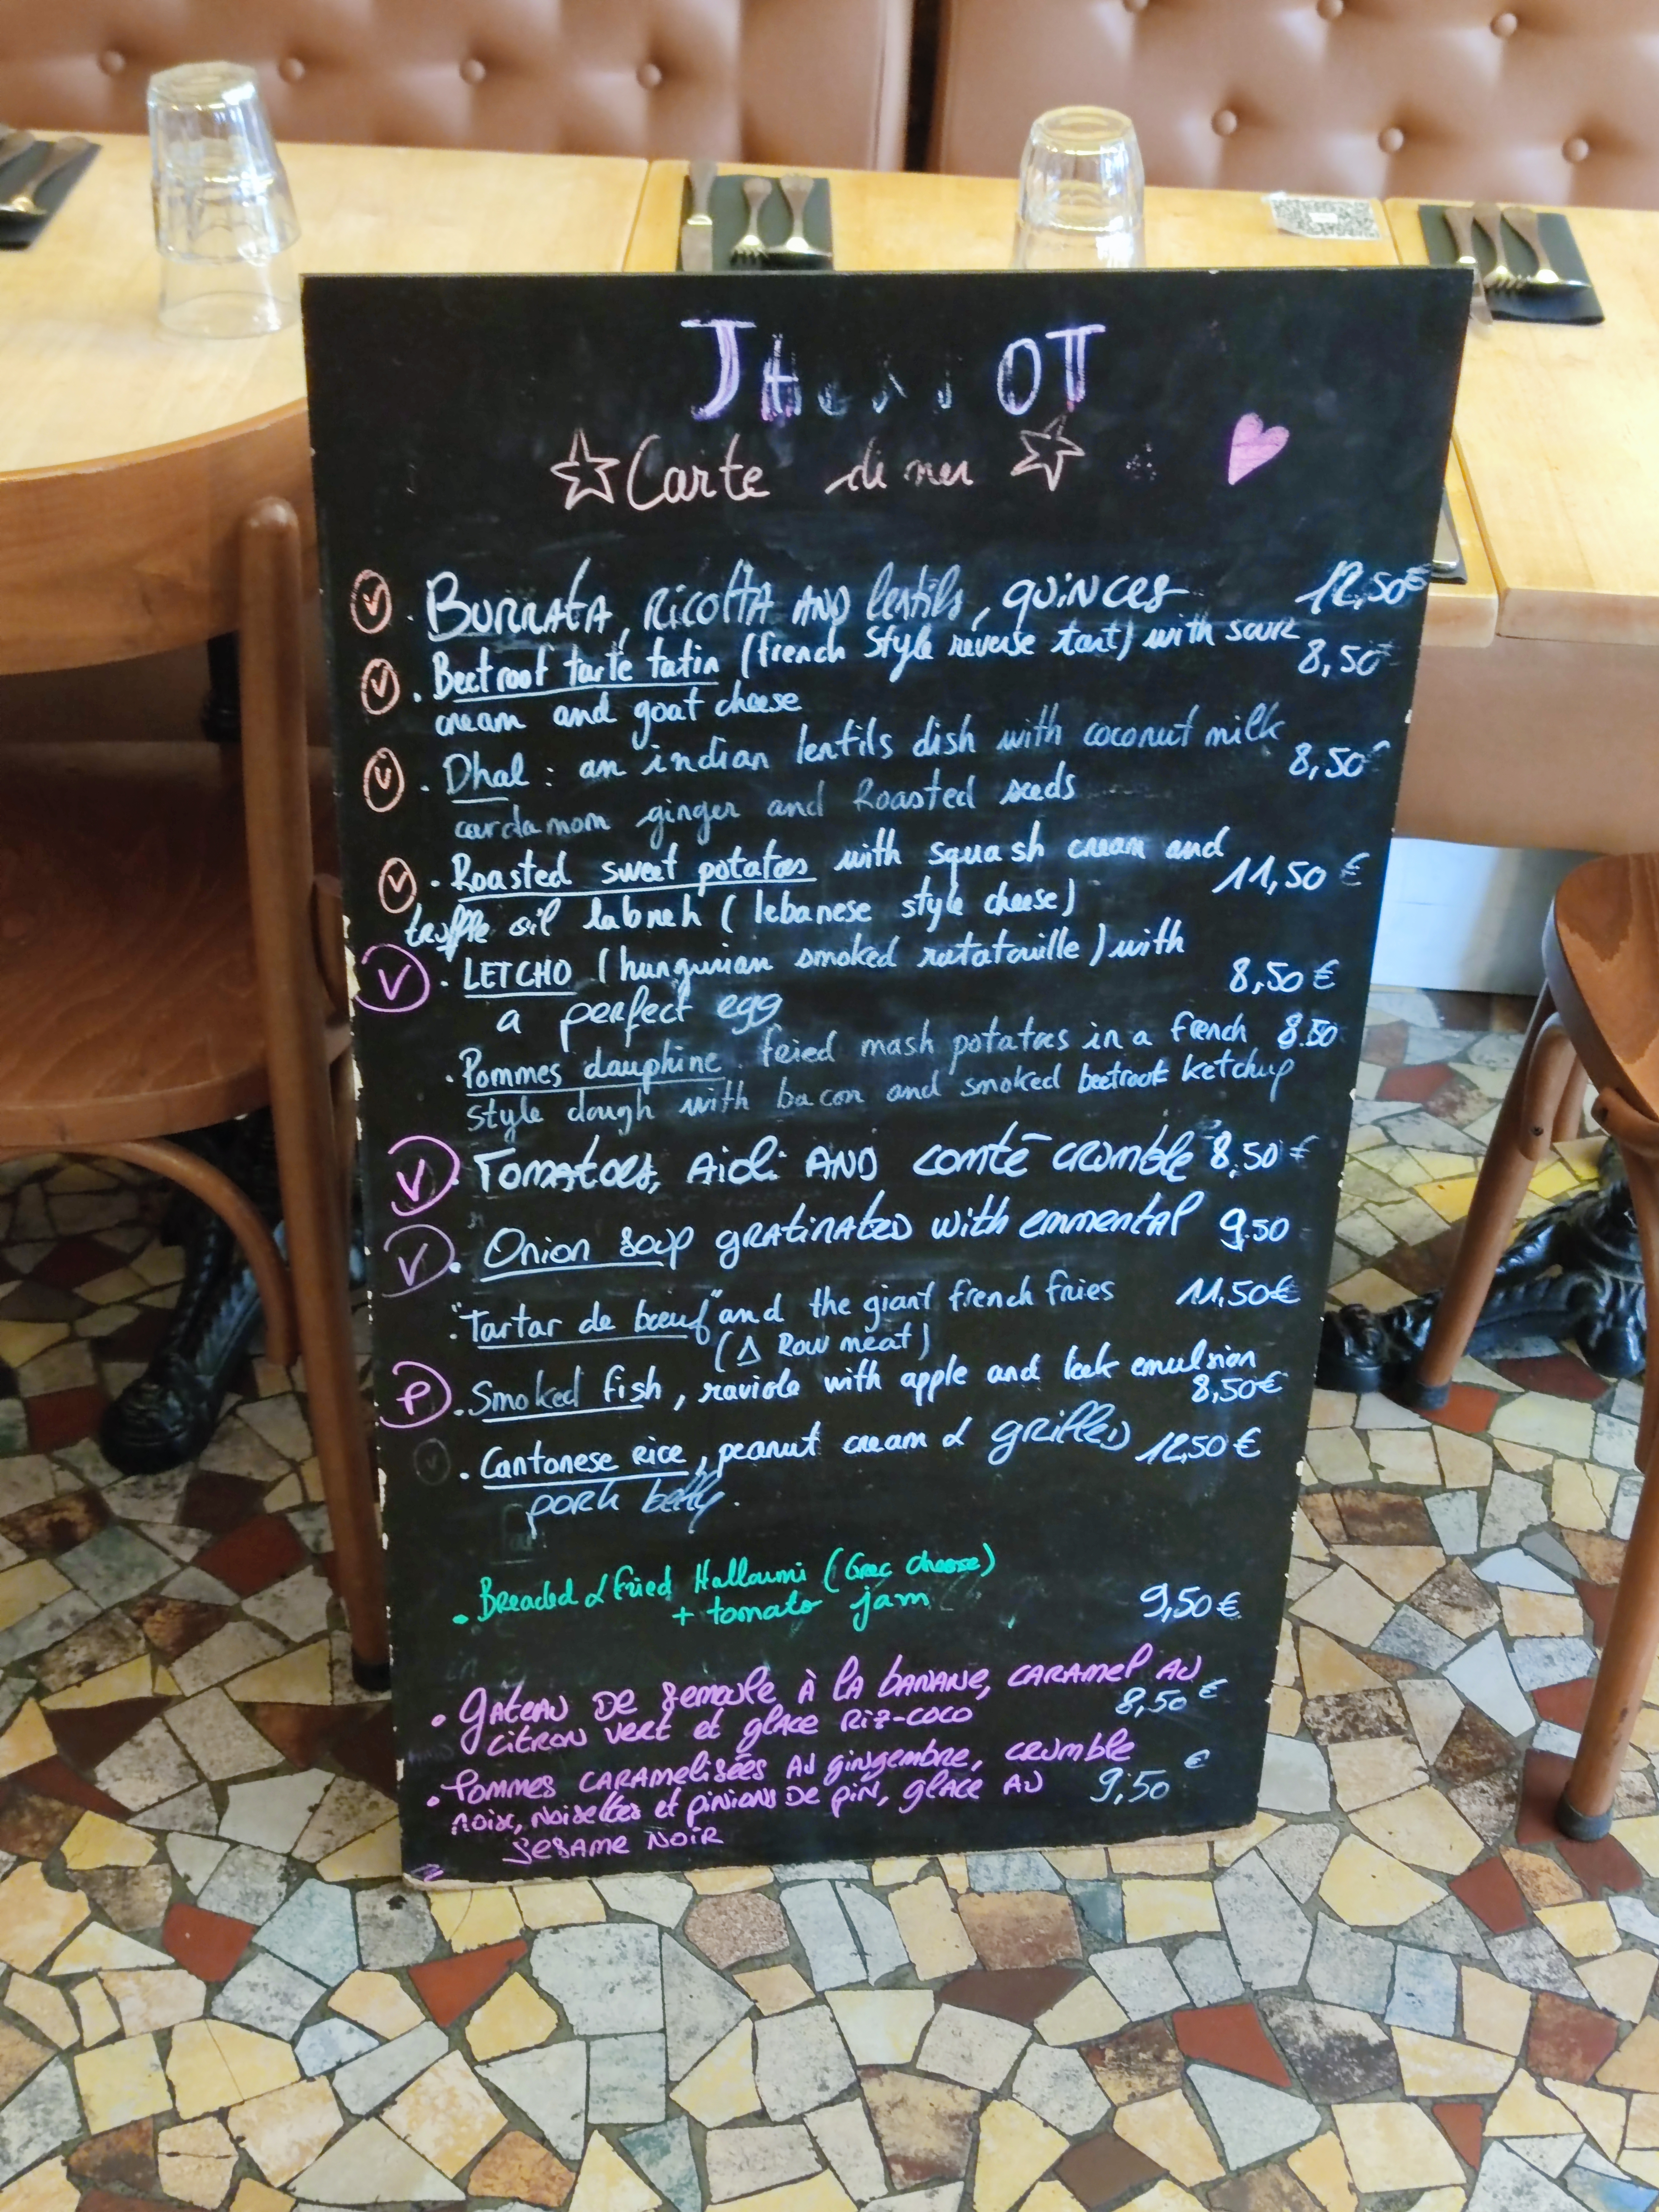 JA OT
Carte
V . BURRATA, RICOTTA AND lentils, quinces 12,50€
V . Beetroot tarte tatin (french Style reverse tart) with sour 8,50€
cream and goat cheese
V . Dhal : an indian lentils dish with coconut milk 8,50€
cardamom ginger and Roasted seeds
V . Roasted sweet potatoes with squash cream and 11,50 €
truffle oil labneh (lebanese style cheese)
V . LETCHO (hungurian smoked ratatouille) with 8,50 €
a perfect egg
. Pommes dauphine . fried mash potatoes in a french 8.50
style dough with bacon and smoked beetroot ketchup
V . Tomatoes, Aioli AND comté crumble 8,50 €
V . Onion soup gratinated with emmental 9.50
. "Tartar de bœuf" and the giant french fries 11,50€
(Δ Raw meat)
P . Smoked fish, raviole with apple and leek emulsion
8,50€
. Cantonese Rice, peanut cream & grilled 12,50 €
pork belly.
. Breaded & fried Halloumi (Grec cheese)
+ tomato jam 9,50 €
. gâteau de semoule à la banane, caramel au
citron vert et glace Riz-coco 8,50 €
. Pommes caramelisées au gingembre, crumble
noix, noisettes et pinions de pin, glace au 9,50 €
sesame noir